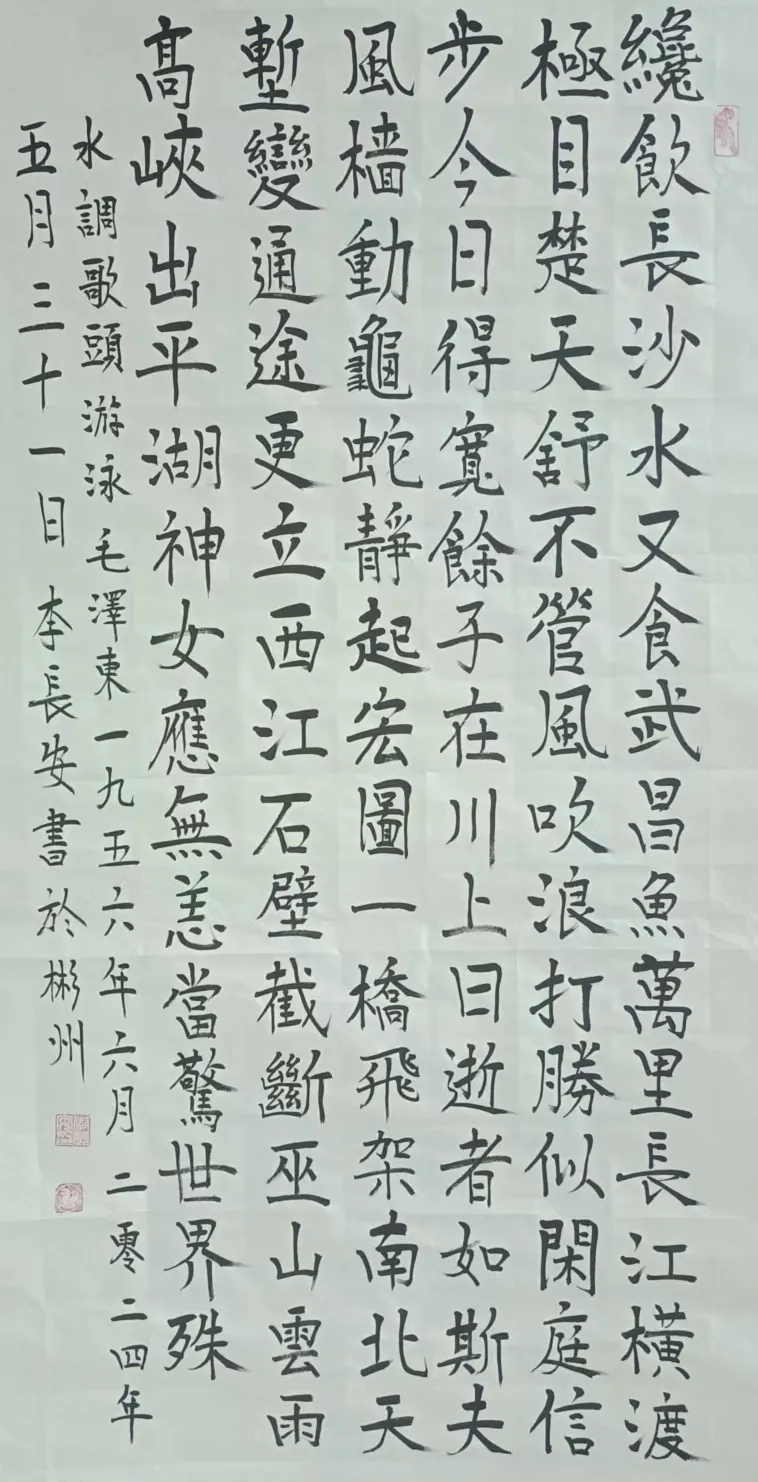 纔飲長沙水又食武昌魚萬里長江橫渡
極目楚天舒不管風吹浪打勝似閑庭信
步今日得寬餘子在川上曰逝者如斯夫
風檣動龜蛇靜起宏圖一橋飛架南北天
塹變通途更立西江石壁截斷巫山雲雨
高峽出平湖神女應無恙當驚世界殊
水調歌頭游泳毛澤東一九五六年六月二零二四年
五月三十一日李長安書於彬州